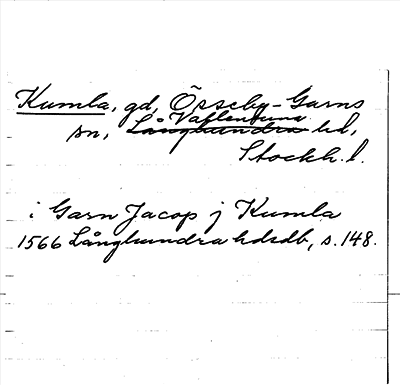 Kumla, gd, Össeby-Garns
Vallentuna
sn, Långhundra hd,
Stockh. l.
i Garn Jacop j Kumla
1566 Långhundra hdsdb, s. 148.